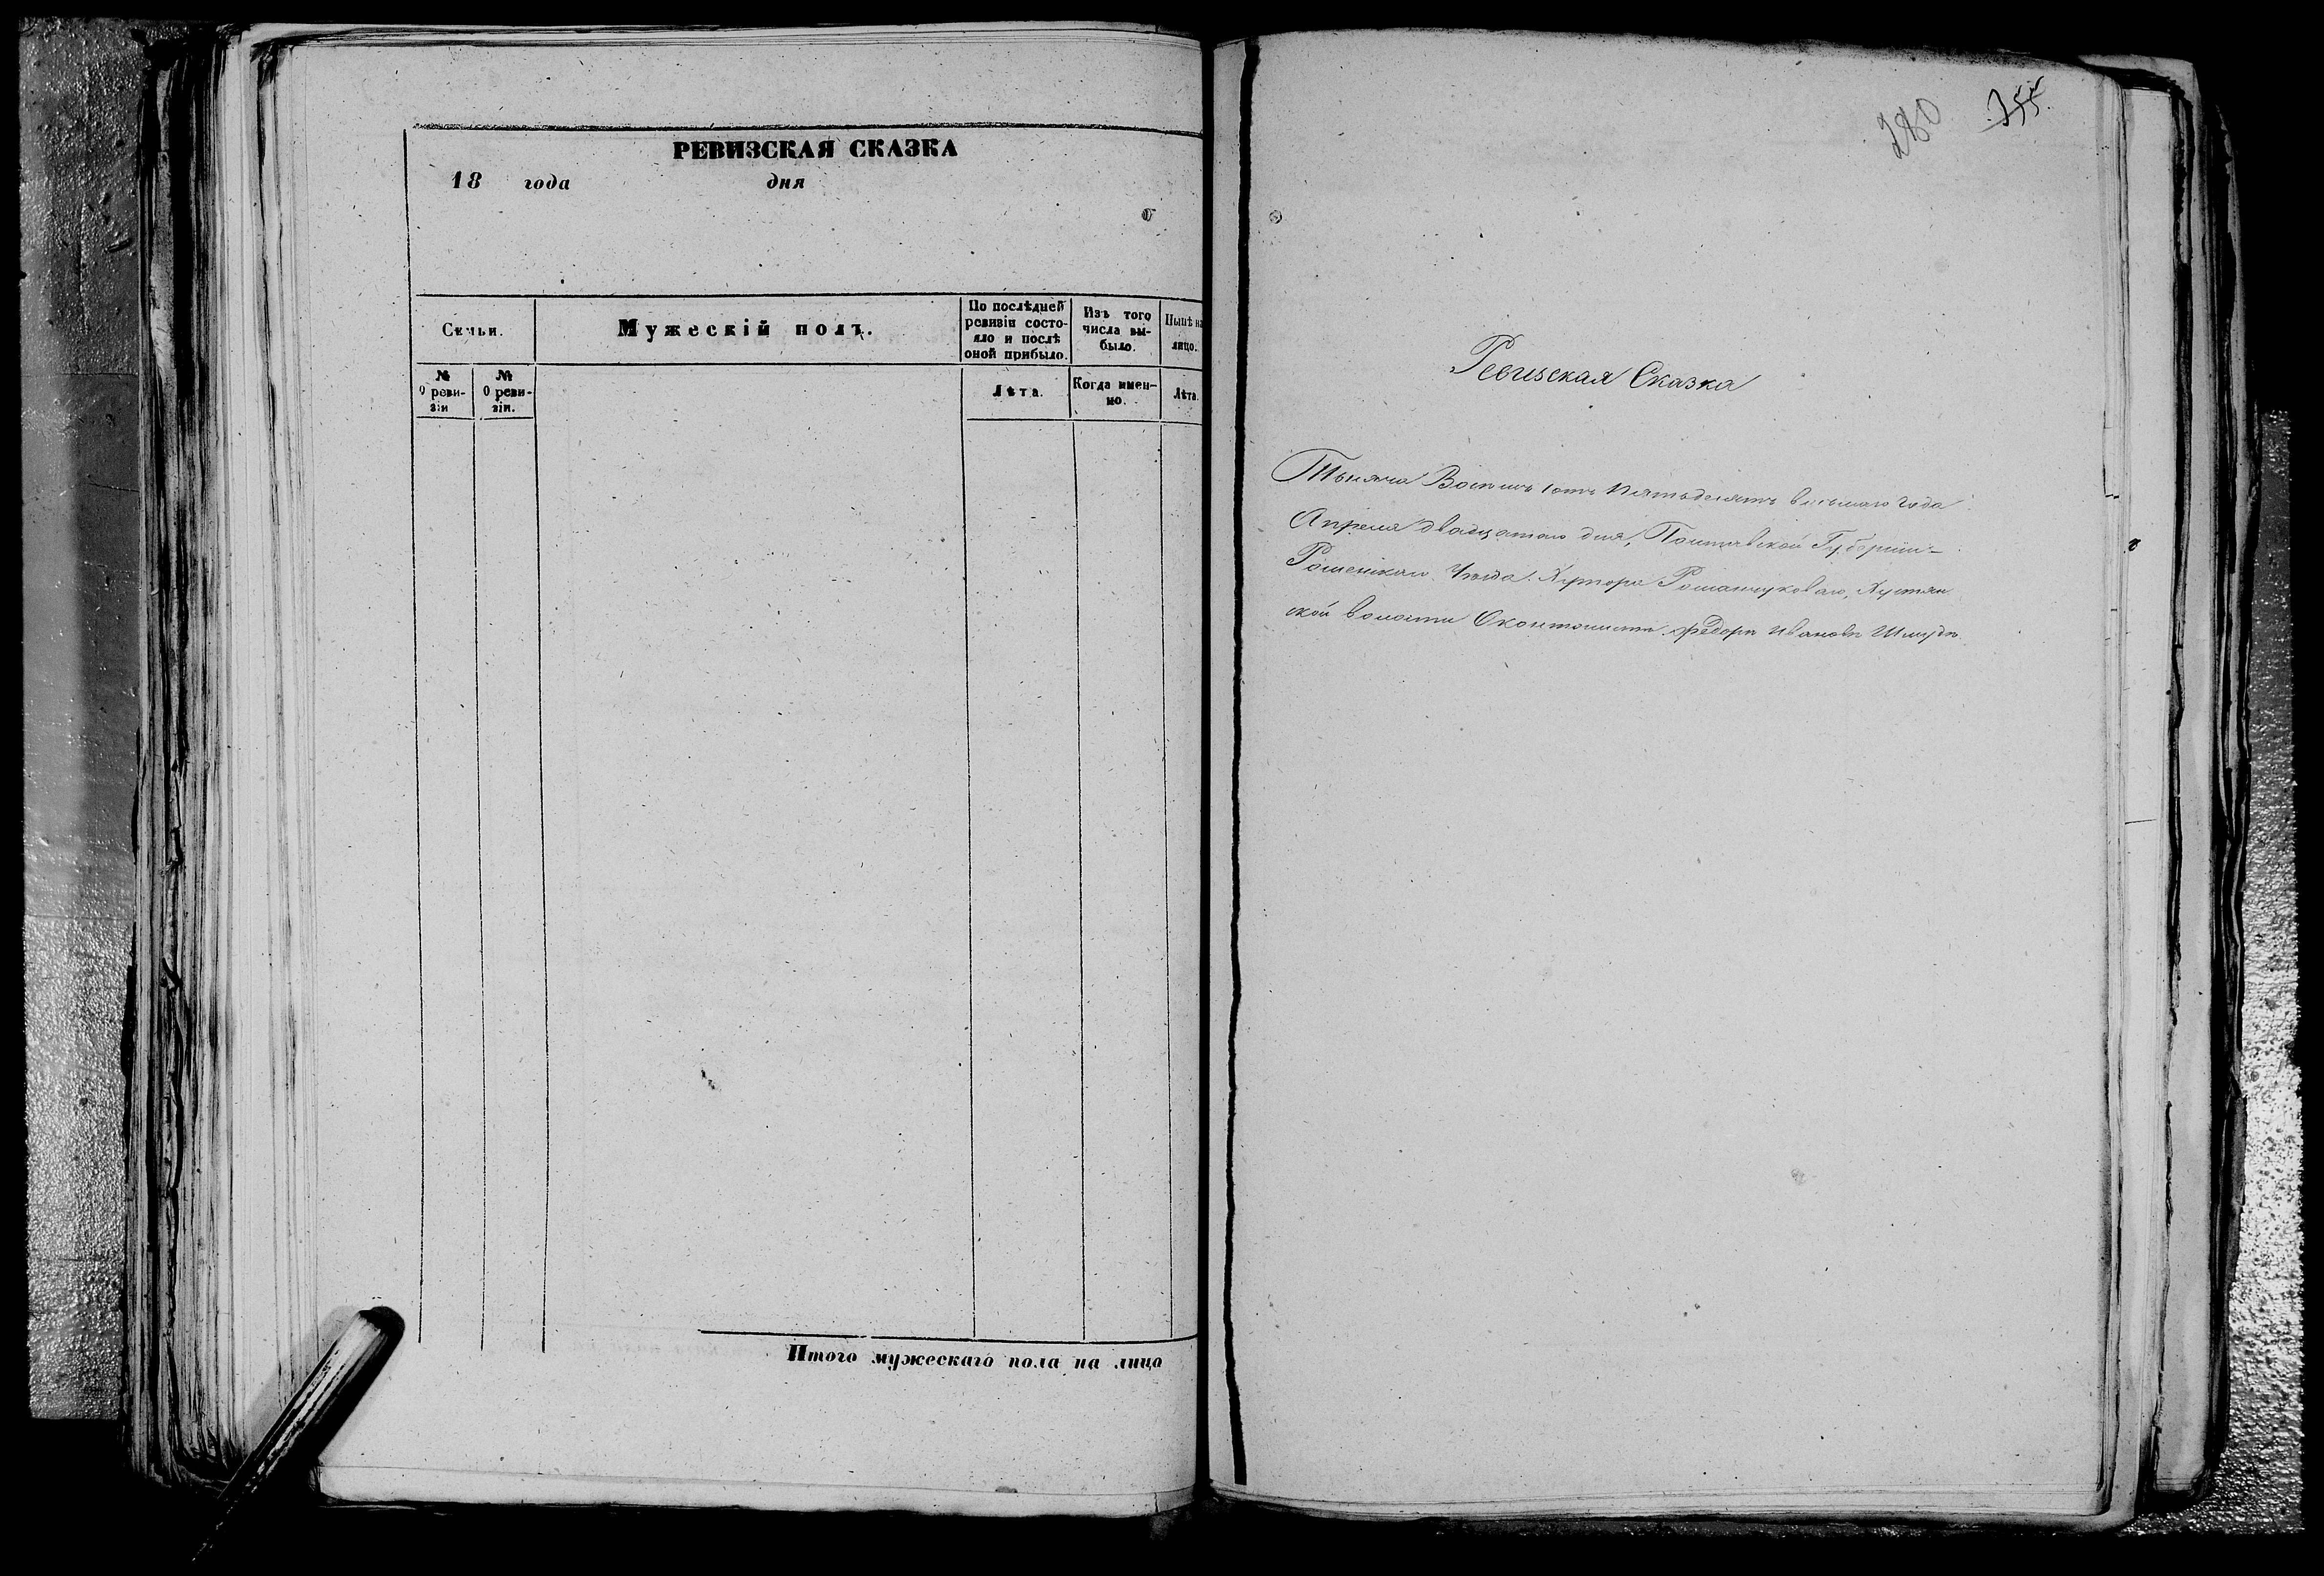 РЕВИЗСКАЯ СКАЗКА
18 года дня
о
Семьи.
Мужескій полъ.
По послѣдней ревизіи состояло и послѣ оной прибыло.
Изъ того числа выбыло.
Нынѣ на лицо.
№ О ревизіи
№ О ревизіи.
Лѣта.
Когда именно.
Лѣта.
Итого мужескаго пола на лицо
280 355.
Ревизская Сказка
Тысяча Восемь сотъ пятьдесятъ восьмаго года
Апреля двадцатого дня, Полтавской Губерніи
Роменскаго Уезда. Хутора Романчуковаго, Хустян
ской волости Федоръ Ивановъ Шмудь